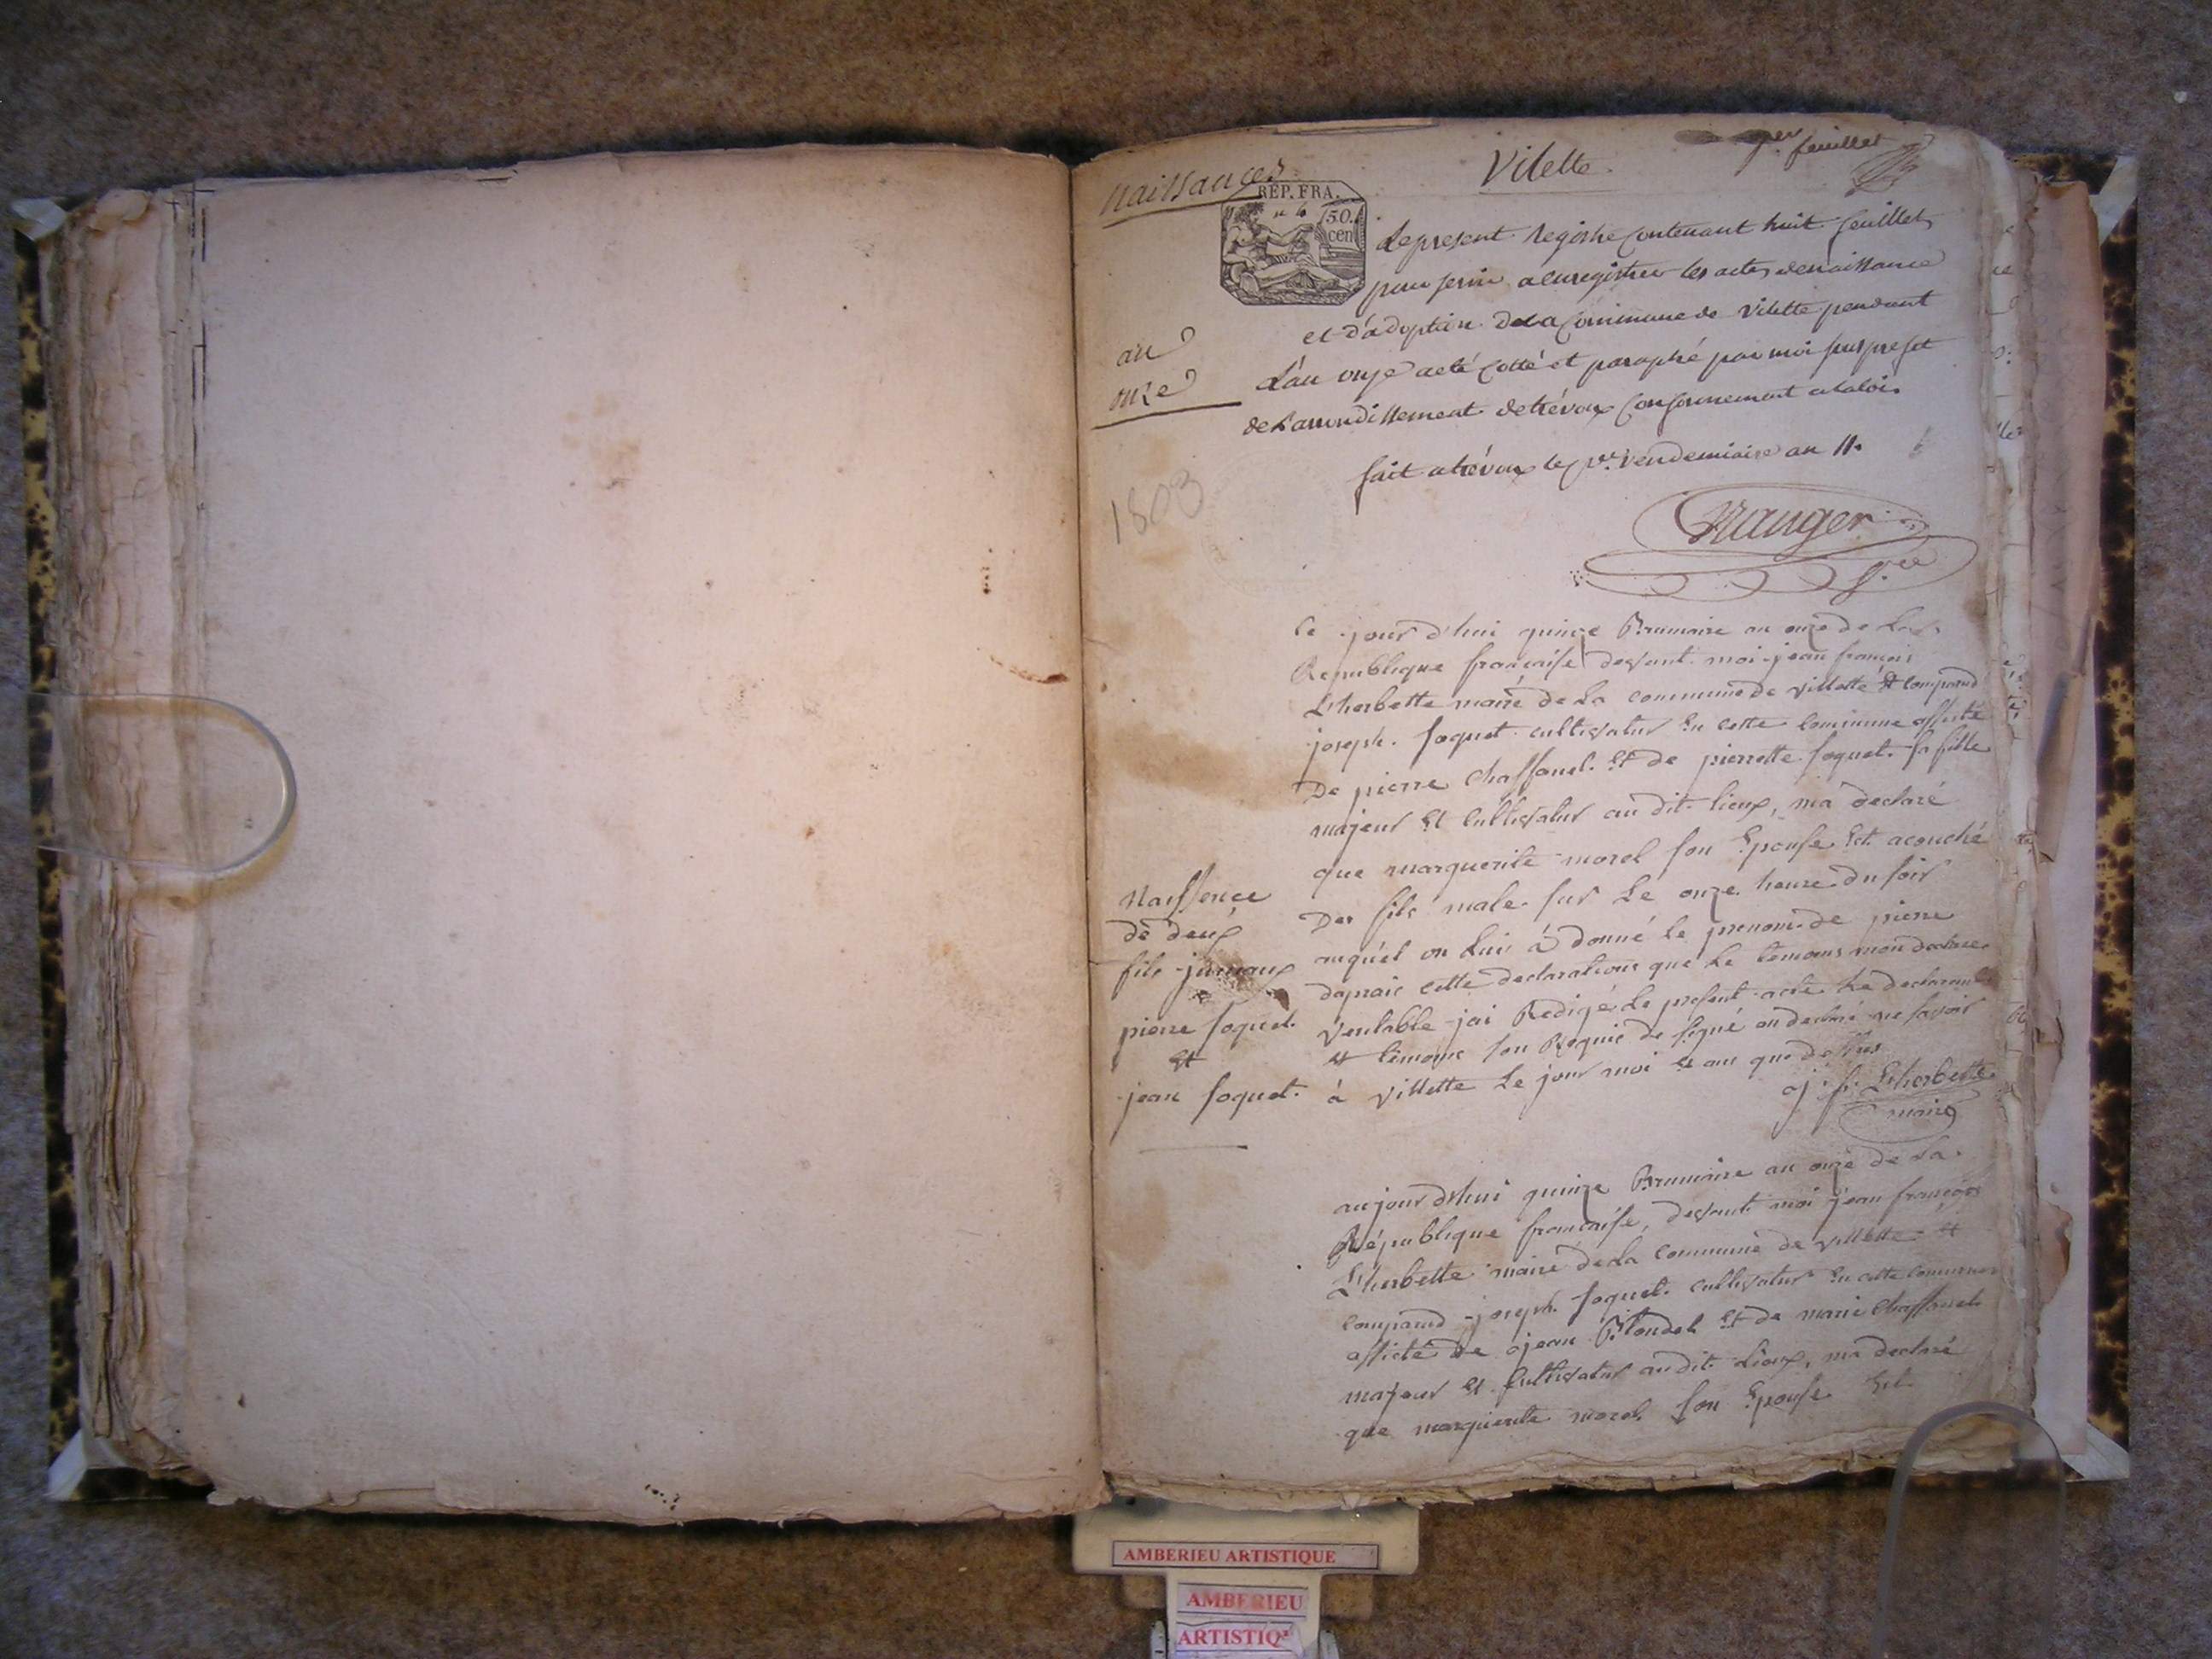 Naissances
Vilette.
1er feuillet
REP. FRA.
50.
cen
Le present Registre contenant huit feuillets
pour servir a enregistrer les actes de naissance
et d'adoption de la Commune de Vilette pendant
L'an onze a eté cotté et paraphé par moi sousprefet
de L'arrondissement de trévoux conformement a la loi.
fait a trévoux le vendemiaire an 11.
an
onze
1803
Nauger
Ce jourd'hui quinze Brumaire an onze de La
Republique francaise devant moi jean francois
L'herbette maire de La commune de villette Et comparud
joseph. foquet cultivatur En cette commune assisté
De pierre Chaffanel. Et de pierrette foquet. sa fille
majeur Et Cultivatur au dit lieux, ma declaré
que marguerite morel son Epouse Est acouché
Des fils male. sur Le onze heure du soir
auquél on Lui à donné le prenom de pierre
daprais cette declarations que Le temoins mon declare
veritable jai Redigé Le present acte Le declarant
et témoins son Requis de signé on declaré ne savoir
à villette Le jour moi Et an que dessus
j. f. L'herbette
maire
Naissence
de deux
fils jumaux
pierre foquet.
Et
jean foquet.
aujourdhui quinze Brumaire an onze de La
République francaise, devant moi jean françois
L'herbette maire de La commune de villette Et
comparud joseph. foquet. cultivatur En cette commune
assisté de jean Blondel Et de marie Chaffanel
majeur Et Cultivatur au dit Lieux, ma declaré
que marguerite morel son Epouse Est
AMBERIEU ARTISTIQUE
AMBERIEU
ARTISTIQ